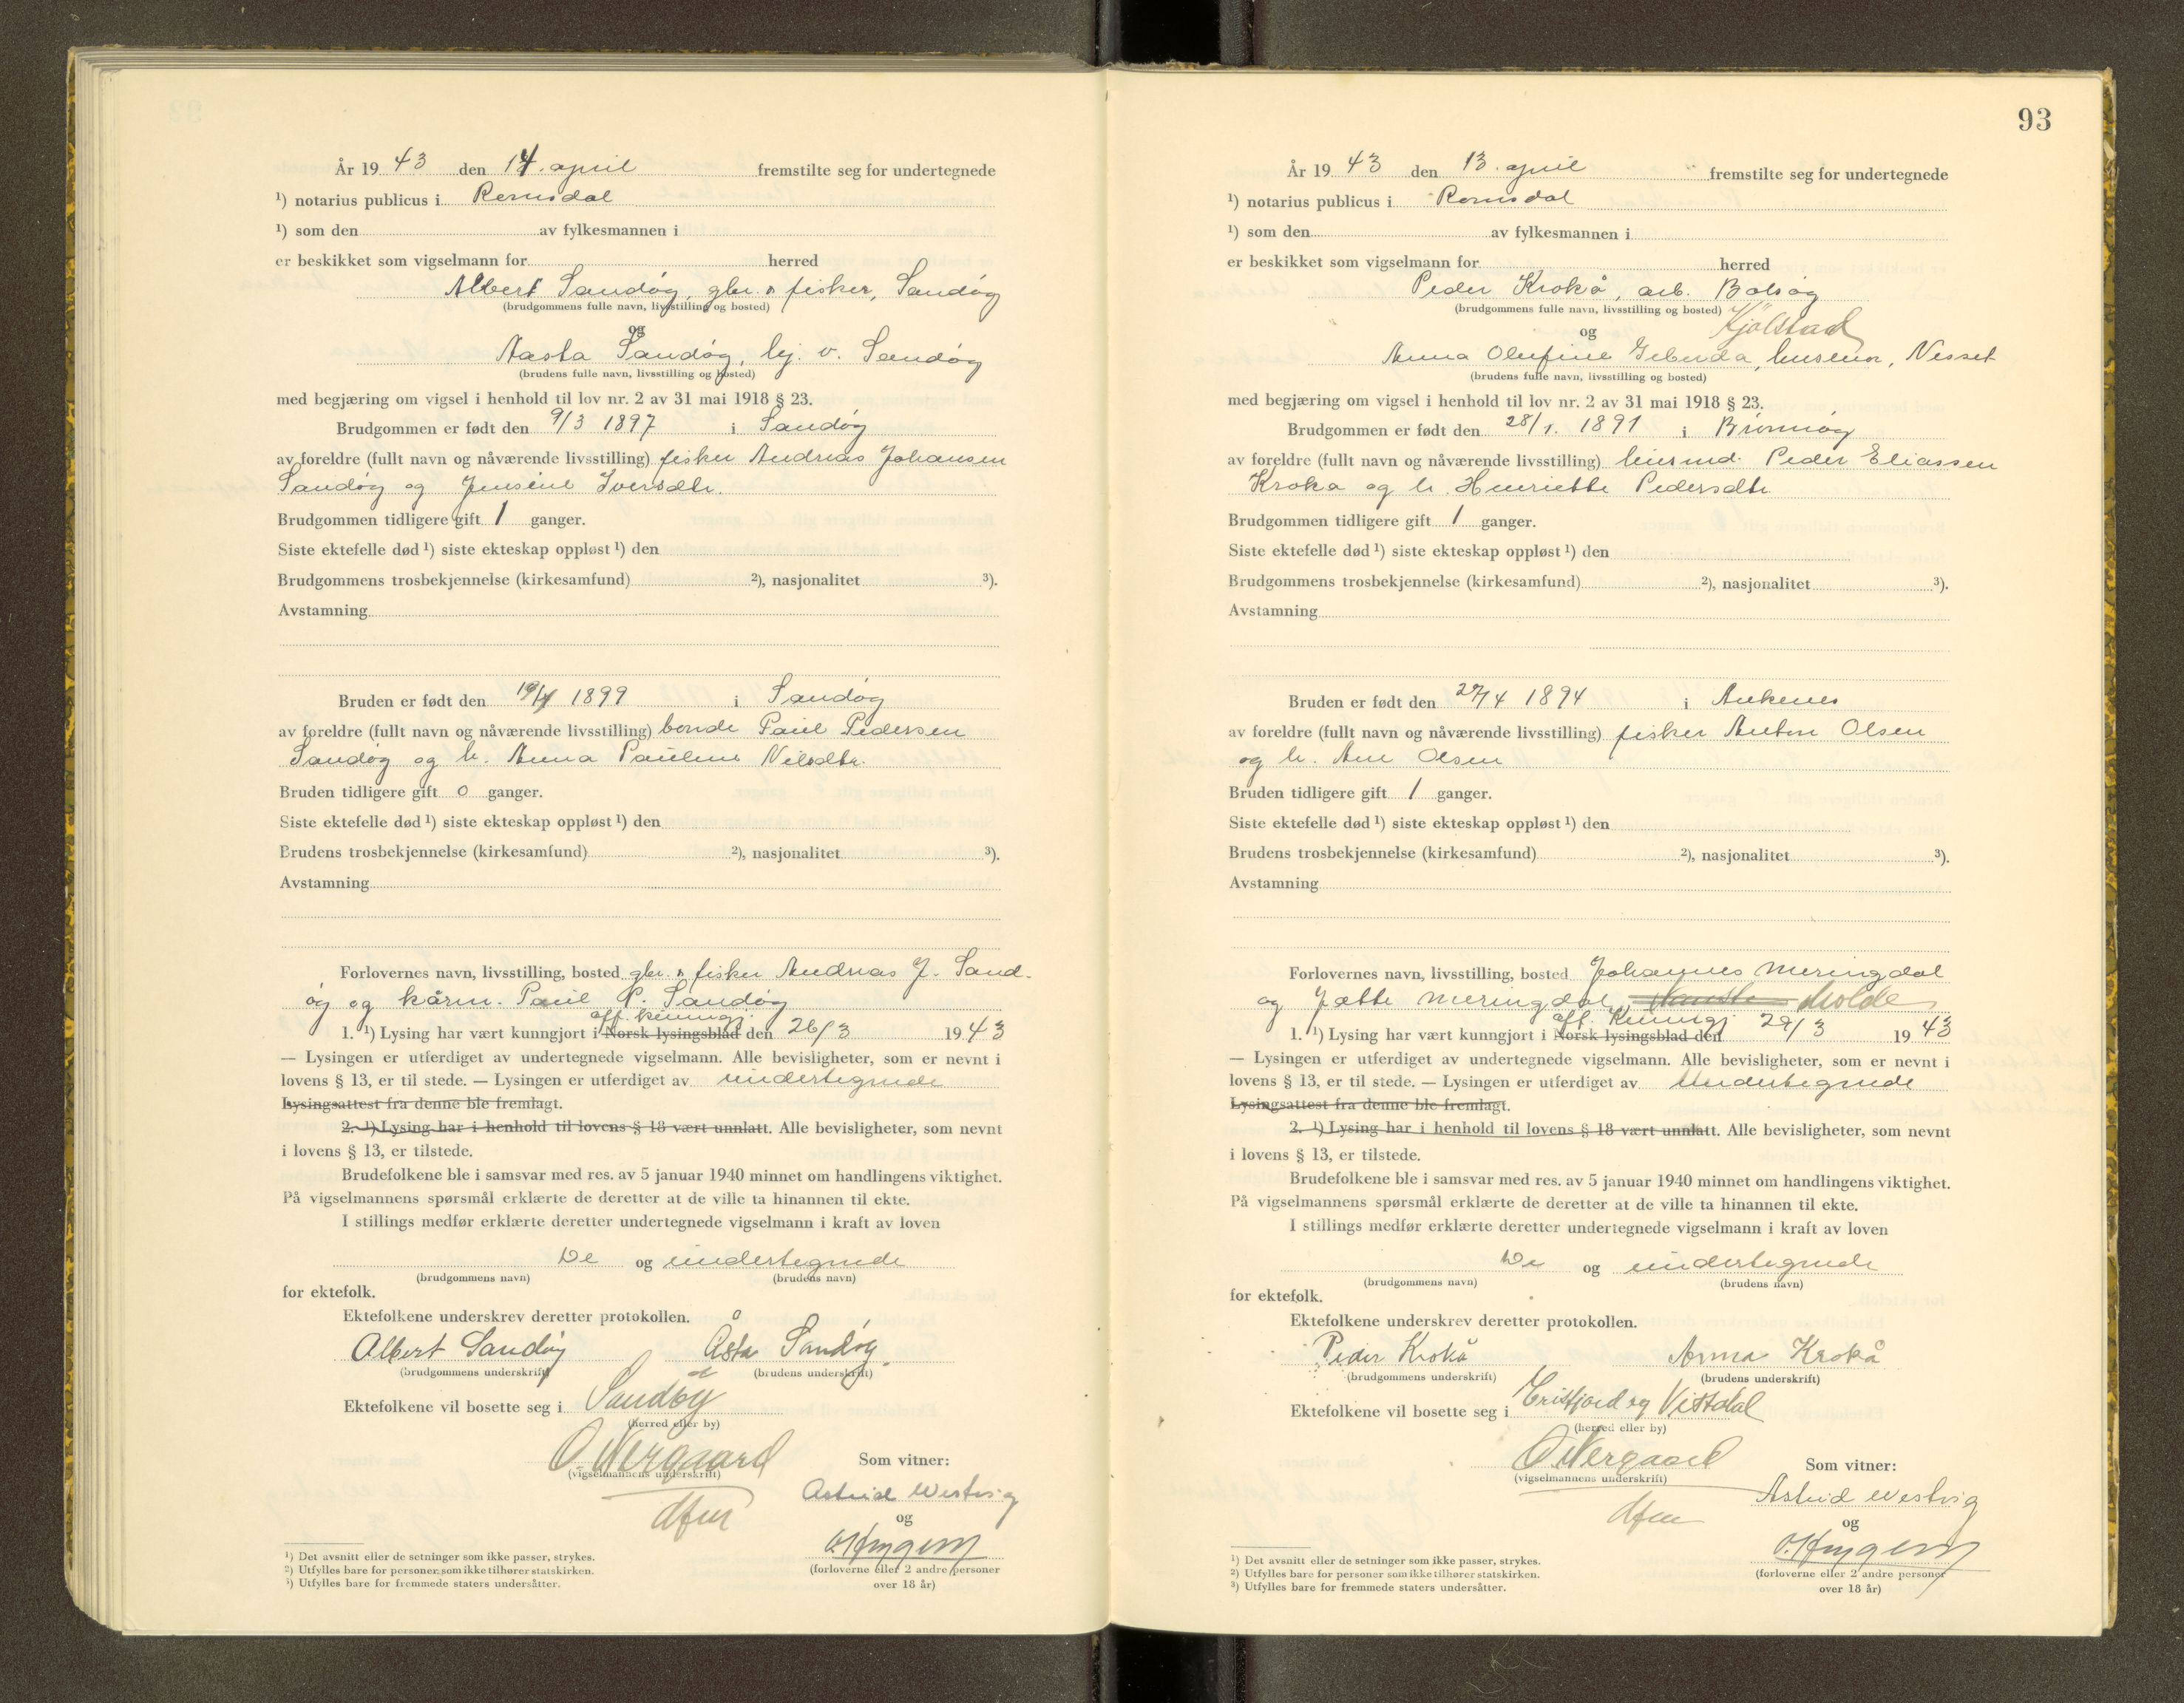 År 19 43 den 14. april fremstilte seg for undertegnede
¹) notarius publicus i Romsdal
¹) som den av fylkesmannen i
er beskikket som vigselmann for herred
Albert Sandøy, gbr. & fisker, Sandøy
(brudgommens fulle navn, livsstilling og bosted)
og
Aasta Sandøy, hj. v. Sandøy
(brudens fulle navn, livsstilling og bosted)
med begjæring om vigsel i henhold til lov nr. 2 av 31 mai 1918 § 23.
Brudgommen er født den 9/3 1897 i Sandøy
av foreldre (fullt navn og nåværende livsstilling) fisker Andreas Johansen
Sandøy og Jensine Iversdtr.
Brudgommen tidligere gift 1 ganger.
Siste ektefelle død ¹) siste ekteskap oppløst ¹) den
Brudgommens trosbekjennelse (kirkesamfund) ²), nasjonalitet ³).
Avstamning
Bruden er født den 19/4 1899 i Sandøy
av foreldre (fullt navn og nåværende livsstilling) bonde Paul Pedersen
Sandøy og h. Anna Pauline Nilsdtr.
Bruden tidligere gift 0 ganger.
Siste ektefelle død ¹) siste ekteskap oppløst ¹) den
Brudens trosbekjennelse (kirkesamfund) ²), nasjonalitet ³).
Avstamning
Forlovernes navn, livsstilling, bosted gbr. & fisker Andreas J. Sand-
øy og kårm. Paul P. Sandøy
off. kunngj.
1. ¹) Lysing har vært kunngjort i Norsk lysingsblad den 26/3 19 43
— Lysingen er utferdiget av undertegnede vigselmann. Alle bevisligheter, som er nevnt i
lovens § 13, er til stede. — Lysingen er utferdiget av undertegnede
Lysingsattest fra denne ble fremlagt.
2. ¹) Lysing har i henhold til lovens § 18 vært unnlatt. Alle bevisligheter, som nevnt
i lovens § 13, er tilstede.
Brudefolkene ble i samsvar med res. av 5 januar 1940 minnet om handlingens viktighet.
På vigselmannens spørsmål erklærte de deretter at de ville ta hinannen til ekte.
I stillings medfør erklærte deretter undertegnede vigselmann i kraft av loven
De og undertegnede
(brudgommens navn) (brudens navn)
for ektefolk.
Ektefolkene underskrev deretter protokollen.
Albert Sandøy Åsta Sandøy
(brudgommens underskrift) (brudens underskrift)
Ektefolkene vil bosette seg i Sandøy
(herred eller by)
O Nergaard
(vigselmannens underskrift)
dfm
Som vitner:
Astrid Westvig
og
(forloverne eller 2 andre personer
over 18 år)
¹) Det avsnitt eller de setninger som ikke passer, strykes.
²) Utfylles bare for personer som ikke tilhører statskirken.
³) Utfylles bare for fremmede staters undersåtter.
93
År 19 43 den 13. april fremstilte seg for undertegnede
¹) notarius publicus i Romsdal
¹) som den av fylkesmannen i
er beskikket som vigselmann for herred
Peder Krokå, arb. Bolsøy
(brudgommens fulle navn, livsstilling og bosted) Kjölstad
og
Anna Olufine Jebuda, husmor, Nesset
(brudens fulle navn, livsstilling og bosted)
med begjæring om vigsel i henhold til lov nr. 2 av 31 mai 1918 § 23.
Brudgommen er født den 28/1. 1891 i Brønnøy
av foreldre (fullt navn og nåværende livsstilling) Peder Eliassen
Kroka og h. Henriette Pedersdtr.
Brudgommen tidligere gift 1 ganger.
Siste ektefelle død ¹) siste ekteskap oppløst ¹) den
Brudgommens trosbekjennelse (kirkesamfund) ²), nasjonalitet ³).
Avstamning
Bruden er født den 27/4 1894 i Ankenes
av foreldre (fullt navn og nåværende livsstilling) fisker Anton Olsen
og h. Ane Olsen
Bruden tidligere gift 1 ganger.
Siste ektefelle død ¹) siste ekteskap oppløst ¹) den
Brudens trosbekjennelse (kirkesamfund) ²), nasjonalitet ³).
Avstamning
Forlovernes navn, livsstilling, bosted Johannes Meringdal
og Jette Meringdal, Molde
off. Kunngj.
1. ¹) Lysing har vært kunngjort i Norsk lysingsblad den 29/3 19 43
— Lysingen er utferdiget av undertegnede vigselmann. Alle bevisligheter, som er nevnt i
lovens § 13, er til stede. — Lysingen er utferdiget av Undertegnede
Lysingsattest fra denne ble fremlagt.
2. ¹) Lysing har i henhold til lovens § 18 vært unnlatt. Alle bevisligheter, som nevnt
i lovens § 13, er tilstede.
Brudefolkene ble i samsvar med res. av 5 januar 1940 minnet om handlingens viktighet.
På vigselmannens spørsmål erklærte de deretter at de ville ta hinannen til ekte.
I stillings medfør erklærte deretter undertegnede vigselmann i kraft av loven
De og undertegnede
(brudgommens navn) (brudens navn)
for ektefolk.
Ektefolkene underskrev deretter protokollen.
Peder Krokå Anna Krokå
(brudgommens underskrift) (brudens underskrift)
Ektefolkene vil bosette seg i Eristfjord og Vistdal
(herred eller by)
O Nergaard
(vigselmannens underskrift)
dfm
Som vitner:
Astrid Westvig
og
(forloverne eller 2 andre personer
over 18 år)
¹) Det avsnitt eller de setninger som ikke passer, strykes.
²) Utfylles bare for personer som ikke tilhører statskirken.
³) Utfylles bare for fremmede staters undersåtter.